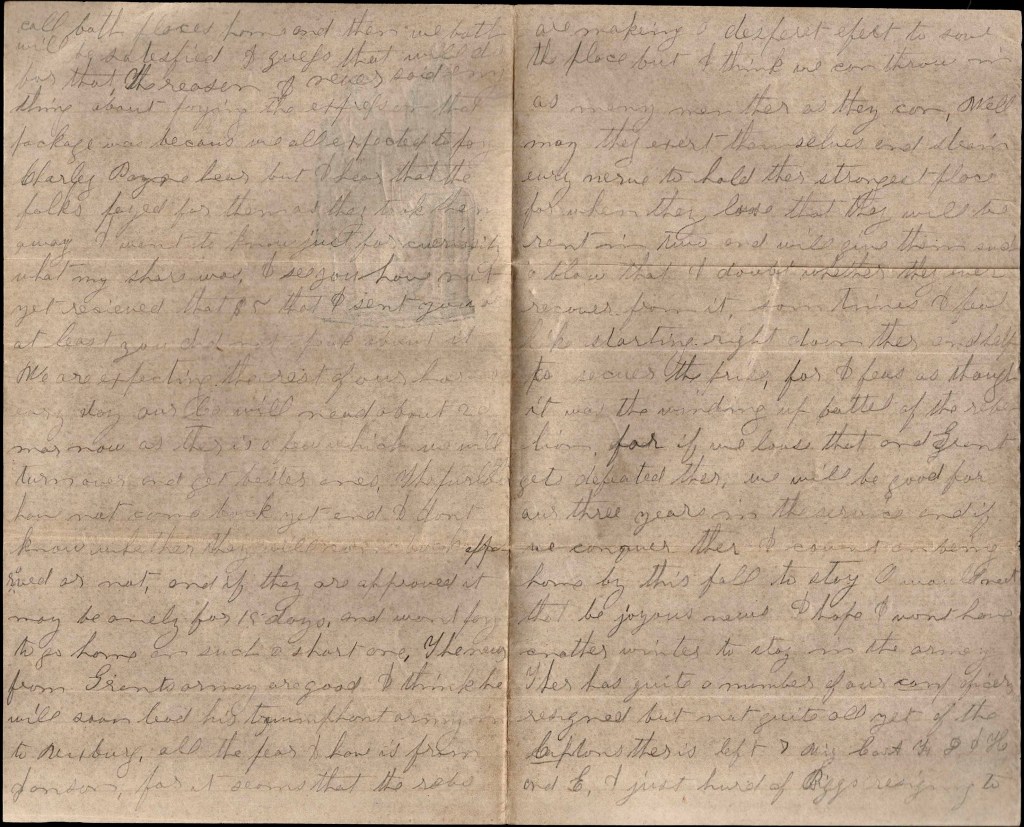 call both places home and then we both
will be satesfied I guess that will do
for that, the reason I never said any
thing about paying the expresson that
package was becaus we all expected to pay
Charley Payne hear but I hear that the
folks payed for them as they took them
away I want to know just for curiosity
what my share was, I see you have not
yet recieved that $5 that I sent you
at least you did not speak about it
We are expecting the rest of our
evry day our Co will need about 20
mor now as ther is a few which we will
turn over and get better ones, The furlous
have not come back yet and I dont
know whether they will come back appo
rved or not, and if they are approved it
may be onely for 15 days, and wont pay
to go home on such a short one, The news
from Grants army are good I think he
will soon lead his tryumphant army in
to Vixburg, all the fear I have is from
Jonson, for it seems that the rebs
are making a desperet efert to save
the place but I think we can throw in
as many men ther as they can, Well
may they exert them selves and strain
evry nerve to hold ther strongest place
for when they lose that they will be
rent in two and will give them such
a blow that I doubt whether they ever
recover from it, som times I feel
like starting right down ther and help
to secure the prise, for I feas as though
it was the winding up battel of the rebe
lion, for if we louse that and Grant
get defeated ther, we will be good for
our three years in the servics and if
we conquer ther I count on being
home by this fall to stay I would not
that be joyous news I hope I wont have
another winter to stay in the army
Ther has quite a number of our com oficers
resigned but not quite all yet of the
Captons ther is left 5 viz Capt K I & H
and E, I just hurd of Riggs resigning to